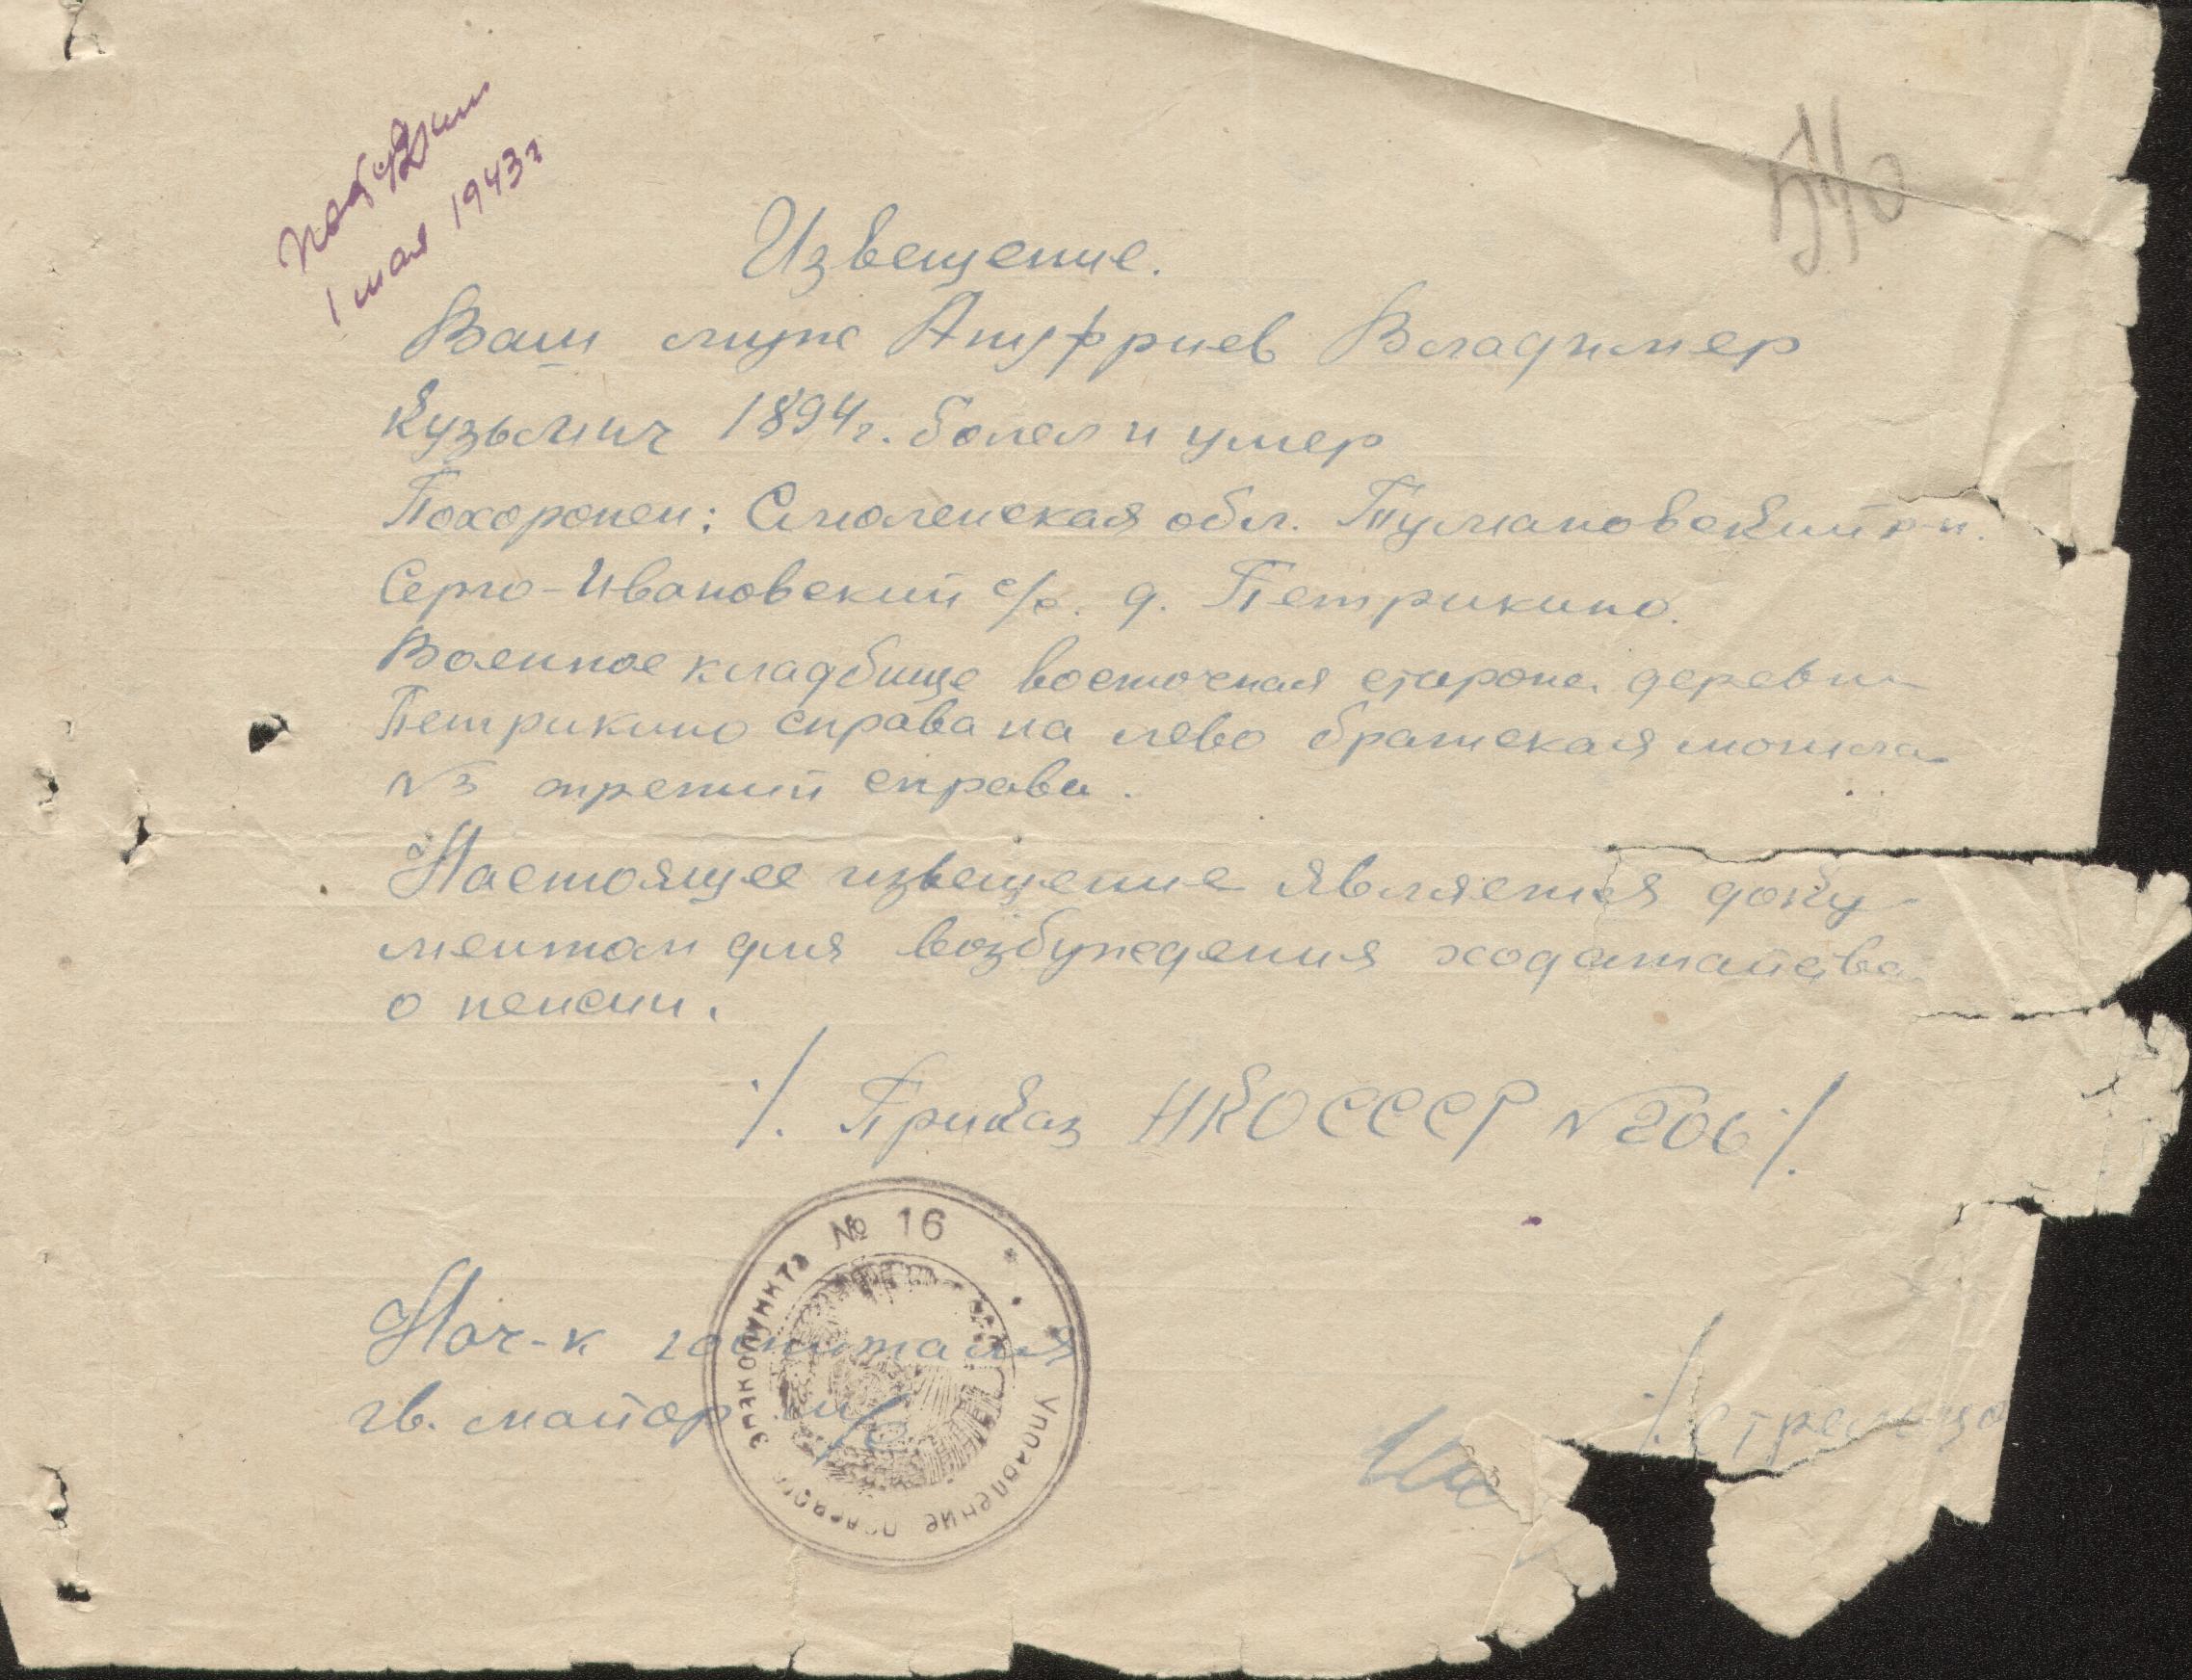 1 мая 1943 г
Извещение.
Ваш муж Ануфриев Владимер
Кузьмич 1894 г. болел и умер
Похоронен: Смоленская обл. Тумановский р-н.
Серго-Ивановский с/с. д. Петрикино.
Военное кладбище восточная сторона деревни
Петрикино справа на лево братская могила
№ 3 третий справа.
Настоящее извещение является доку-
ментом для возбуждения ходатайства
о пенсии.
/. Приказ НКО СССР № 206 /.
№ 16
Управление эвакопункта
Нач-к госпиталя
гв. майор м/с